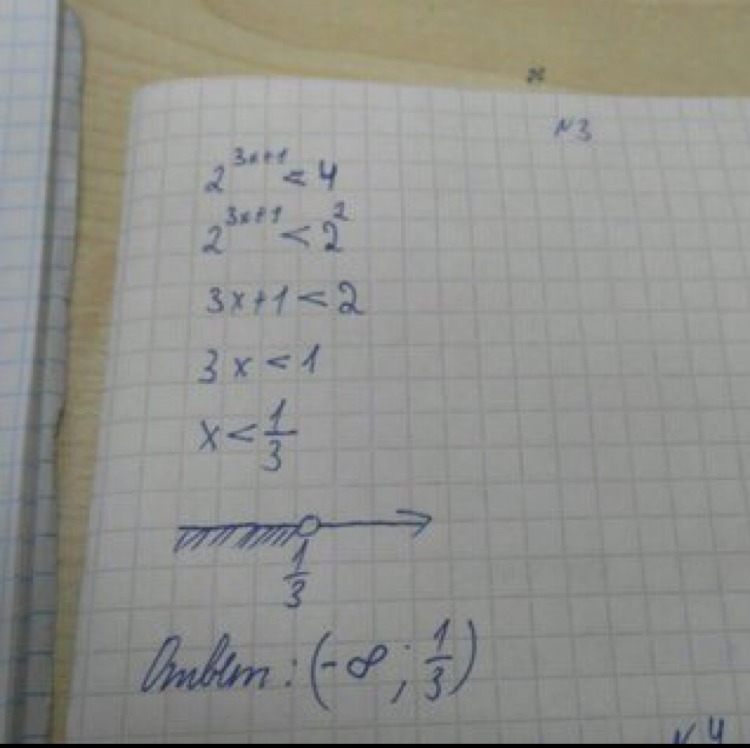 №3
2^{3x+1} < 4
2^{3x+1} < 2^2
3x+1 < 2
3x < 1
x < \frac{1}{3}
\frac{1}{3}
Ответ: (-∞; \frac{1}{3})
№4